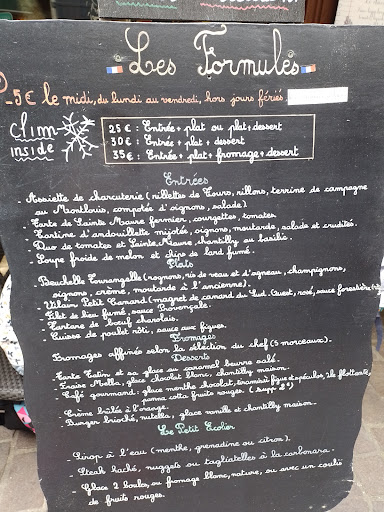 Les Formules
-5€ le midi, du lundi au vendredi, hors jours fériés.
clim inside
25€ : Entrée + plat ou plat + dessert
30€ : Entrée + plat + dessert
35€ : Entrée + plat + fromage + dessert
Entrées
- Assiette de charcuterie (rillettes de Tours, rillons, terrine de campagne
au Montlouis, compotée d'oignons, salade)
- Tarte de Sainte Maure fermier, courgettes, tomates.
- Tartine d'andouillette mijotée, oignons, moutarde, salade et crudités.
- Duo de tomates et Sainte Maure, chantilly au basilic.
- Soupe froide de melon et chips de lard fumé.
Plats
- Beuchelle Tourangelle (rognons, ris de veau et d'agneau, champignons,
oignons, crème, moutarde à l'ancienne).
- Vilain Petit Canard (magret de canard du Sud-Ouest, rosé, sauce forestière
- Filet de lieu fumé, sauce Provençale.
- Tartare de bœuf charolais.
- Cuisse de poulet rôti, sauce aux figues.
Fromages
Fromages affinés selon la sélection du chef (5 morceaux).
Desserts
- Tarte Tatin et sa glace au caramel beurre salé.
- Fraise Mella, glace chocolat blanc, chantilly maison.
- Café gourmand : glace menthe chocolat, tiramisù figue et spéculos, île flottante,
panna cotta fruits rouges. (supp
- Crème brûlée à l'orange.
- Burger brioché, nutella, glace vanille et chantilly maison.
Le Petit Ecolier
- Sirop à l'eau (menthe, grenadine ou citron).
- Steak haché, nuggets ou tagliatelles à la carbonara.
- Glace 2 boules, ou fromage blanc, nature, ou avec un coulis
de fruits rouges.